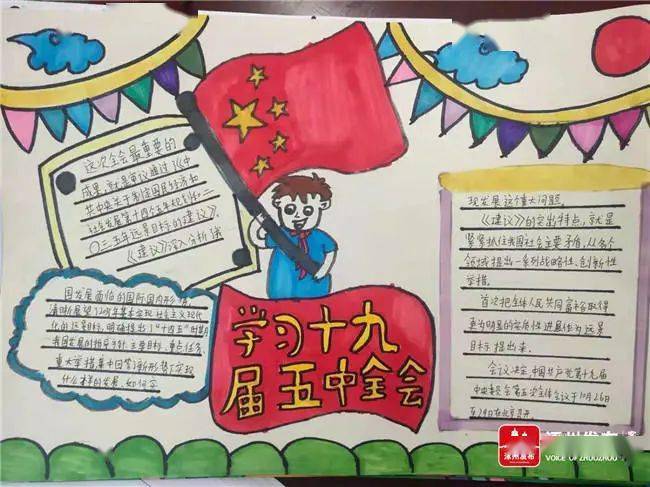 这次全会最重要的
成果，就是审议通过《中
共中央关于制定国民经济和
社会发展第十四个五年规划和二
〇三五年远景目标的建议》，
《建议》深入分析我
国发展面临的国际国内形势，
清晰展望2035年基本实现社会主义现代
化的远景目标，明确提出"十四五"时期
我国发展的指导方针、主要目标、重点任务、
重大举措，集中回答了新形势下实现
什么样的发展、如何实
现发展这个重大问题。
《建议》的突出特点，就是
紧紧抓住我国社会主要矛盾，从各个
领域提出一系列战略性、创新性
举措。
首次把全体人民共同富裕取得
更为明显的实质性进展作为远景
目标提出来。
会议决定，中国共产党第十九届
中央委员会第五次全体会议于10月26日
至29日在北京召开。
学习十九
届五中全会
涿州发布
涿州发布
VOICE OF ZHUOZHOU